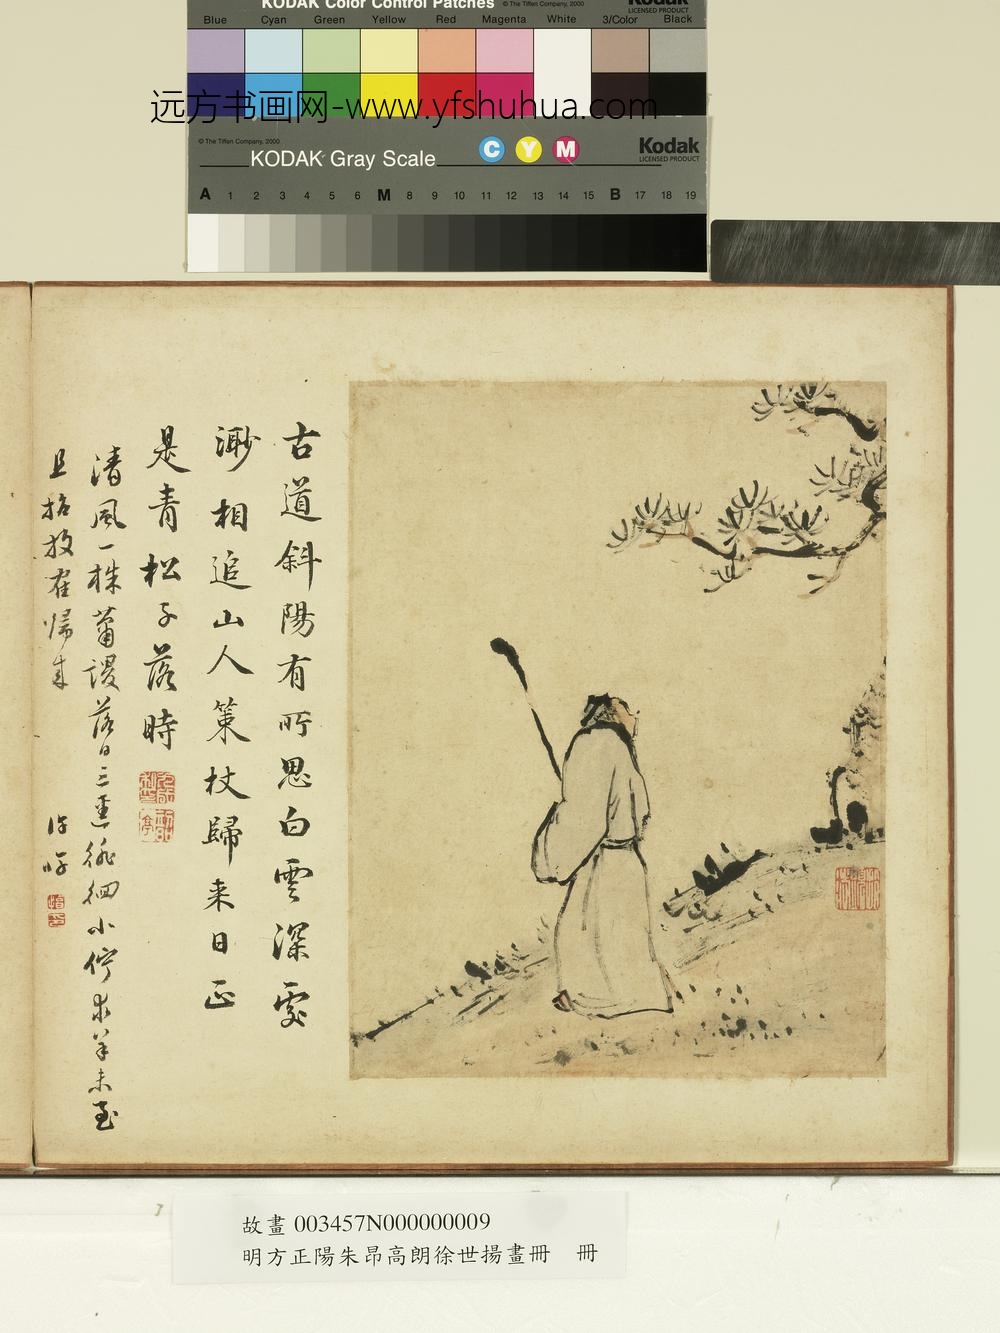 KODAK Color Control Patches
© The Tiffen Company, 2000
Kodak
LICENSED PRODUCT
Blue Cyan Green Yellow Red Magenta White 3/Color Black
远方书画网-www.yfshuhua.com
© The Tiffen Company, 2000
KODAK Gray Scale
C Y M
Kodak
LICENSED PRODUCT
A 1 2 3 4 5 6 M 8 9 10 11 12 13 14 15 B 17 18 19
古道斜陽有所思白雲深處
渺相追山人策杖歸来日正
是青松子落時
清風一株蕭謖落日三徑徘徊小佇
歸來
故畫 003457N000000009
明方正陽朱昂高朗徐世揚畫冊 冊